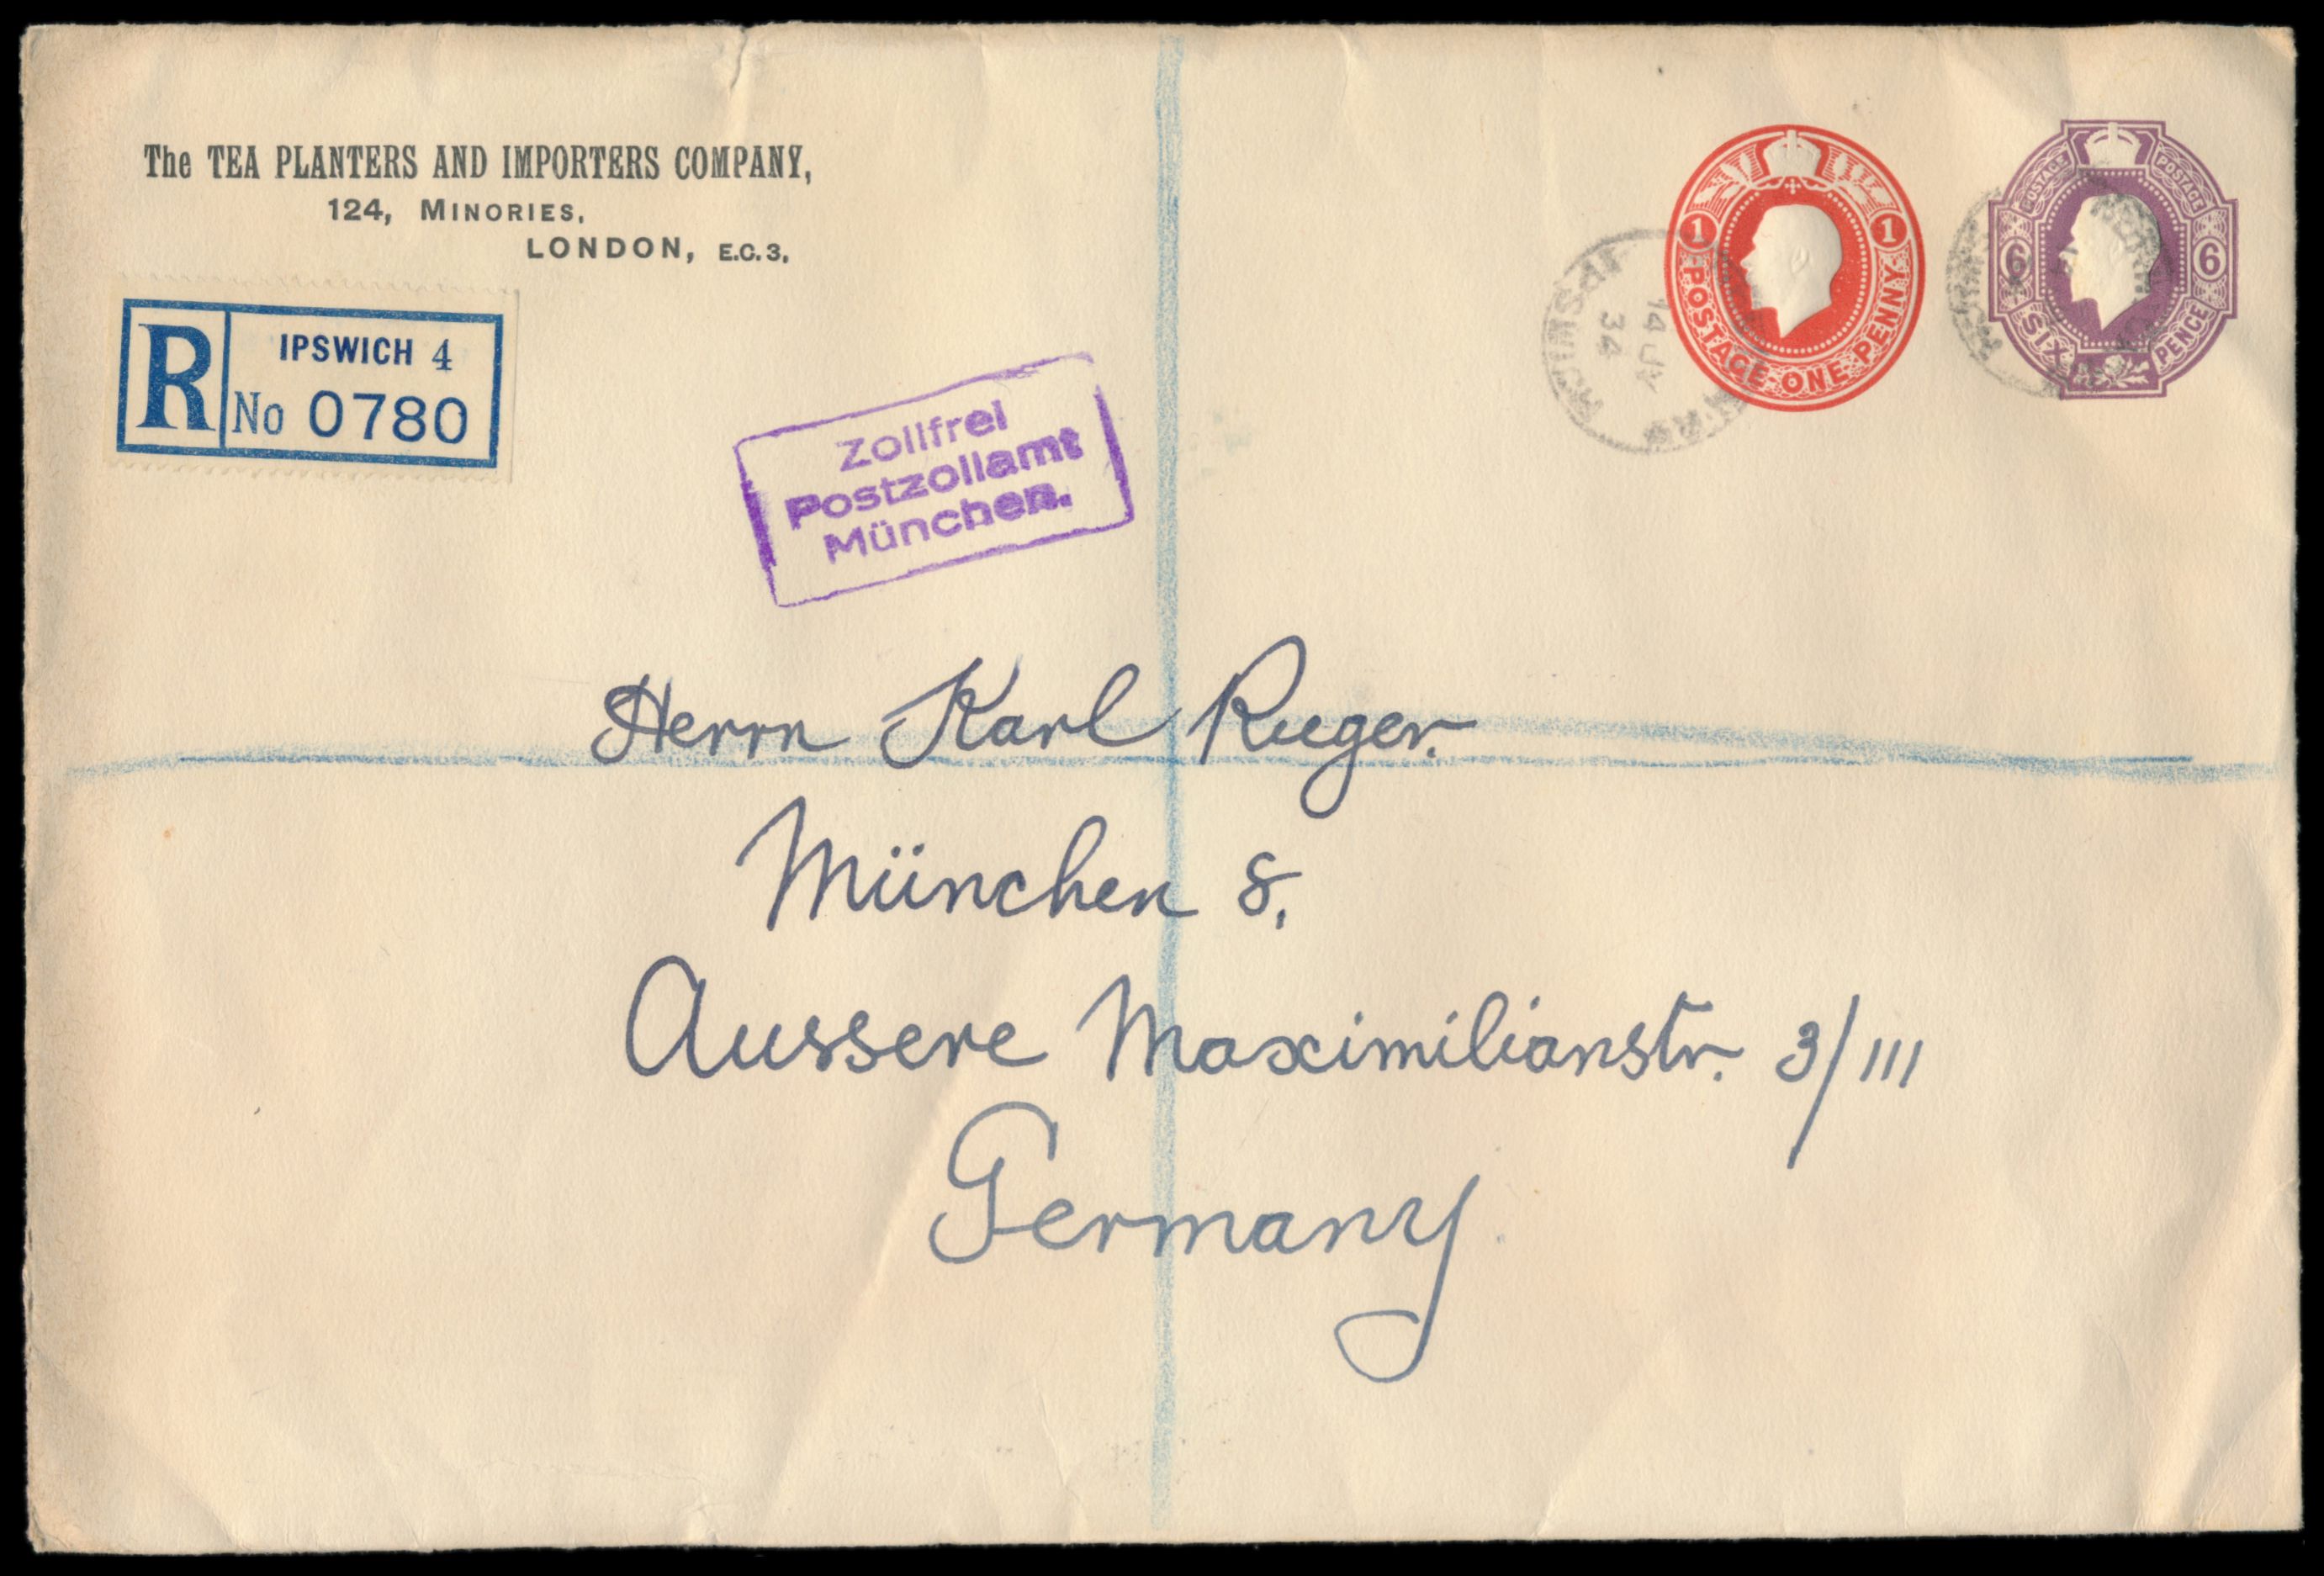 The TEA PLANTERS AND IMPORTERS COMPANY,
124, MINORIES,
LONDON, E.C.3.
R
IPSWICH 4
No 0780
Zollfrei
Postzollamt
München.
1 1
POSTAGE ONE PENNY
POSTAGE POSTAGE
6 6
SIX PENCE
IPSWICH
14 JY
34
Herrn Karl Rueger.
München 8,
Aussere Maximilianstr. 3/III
Germany